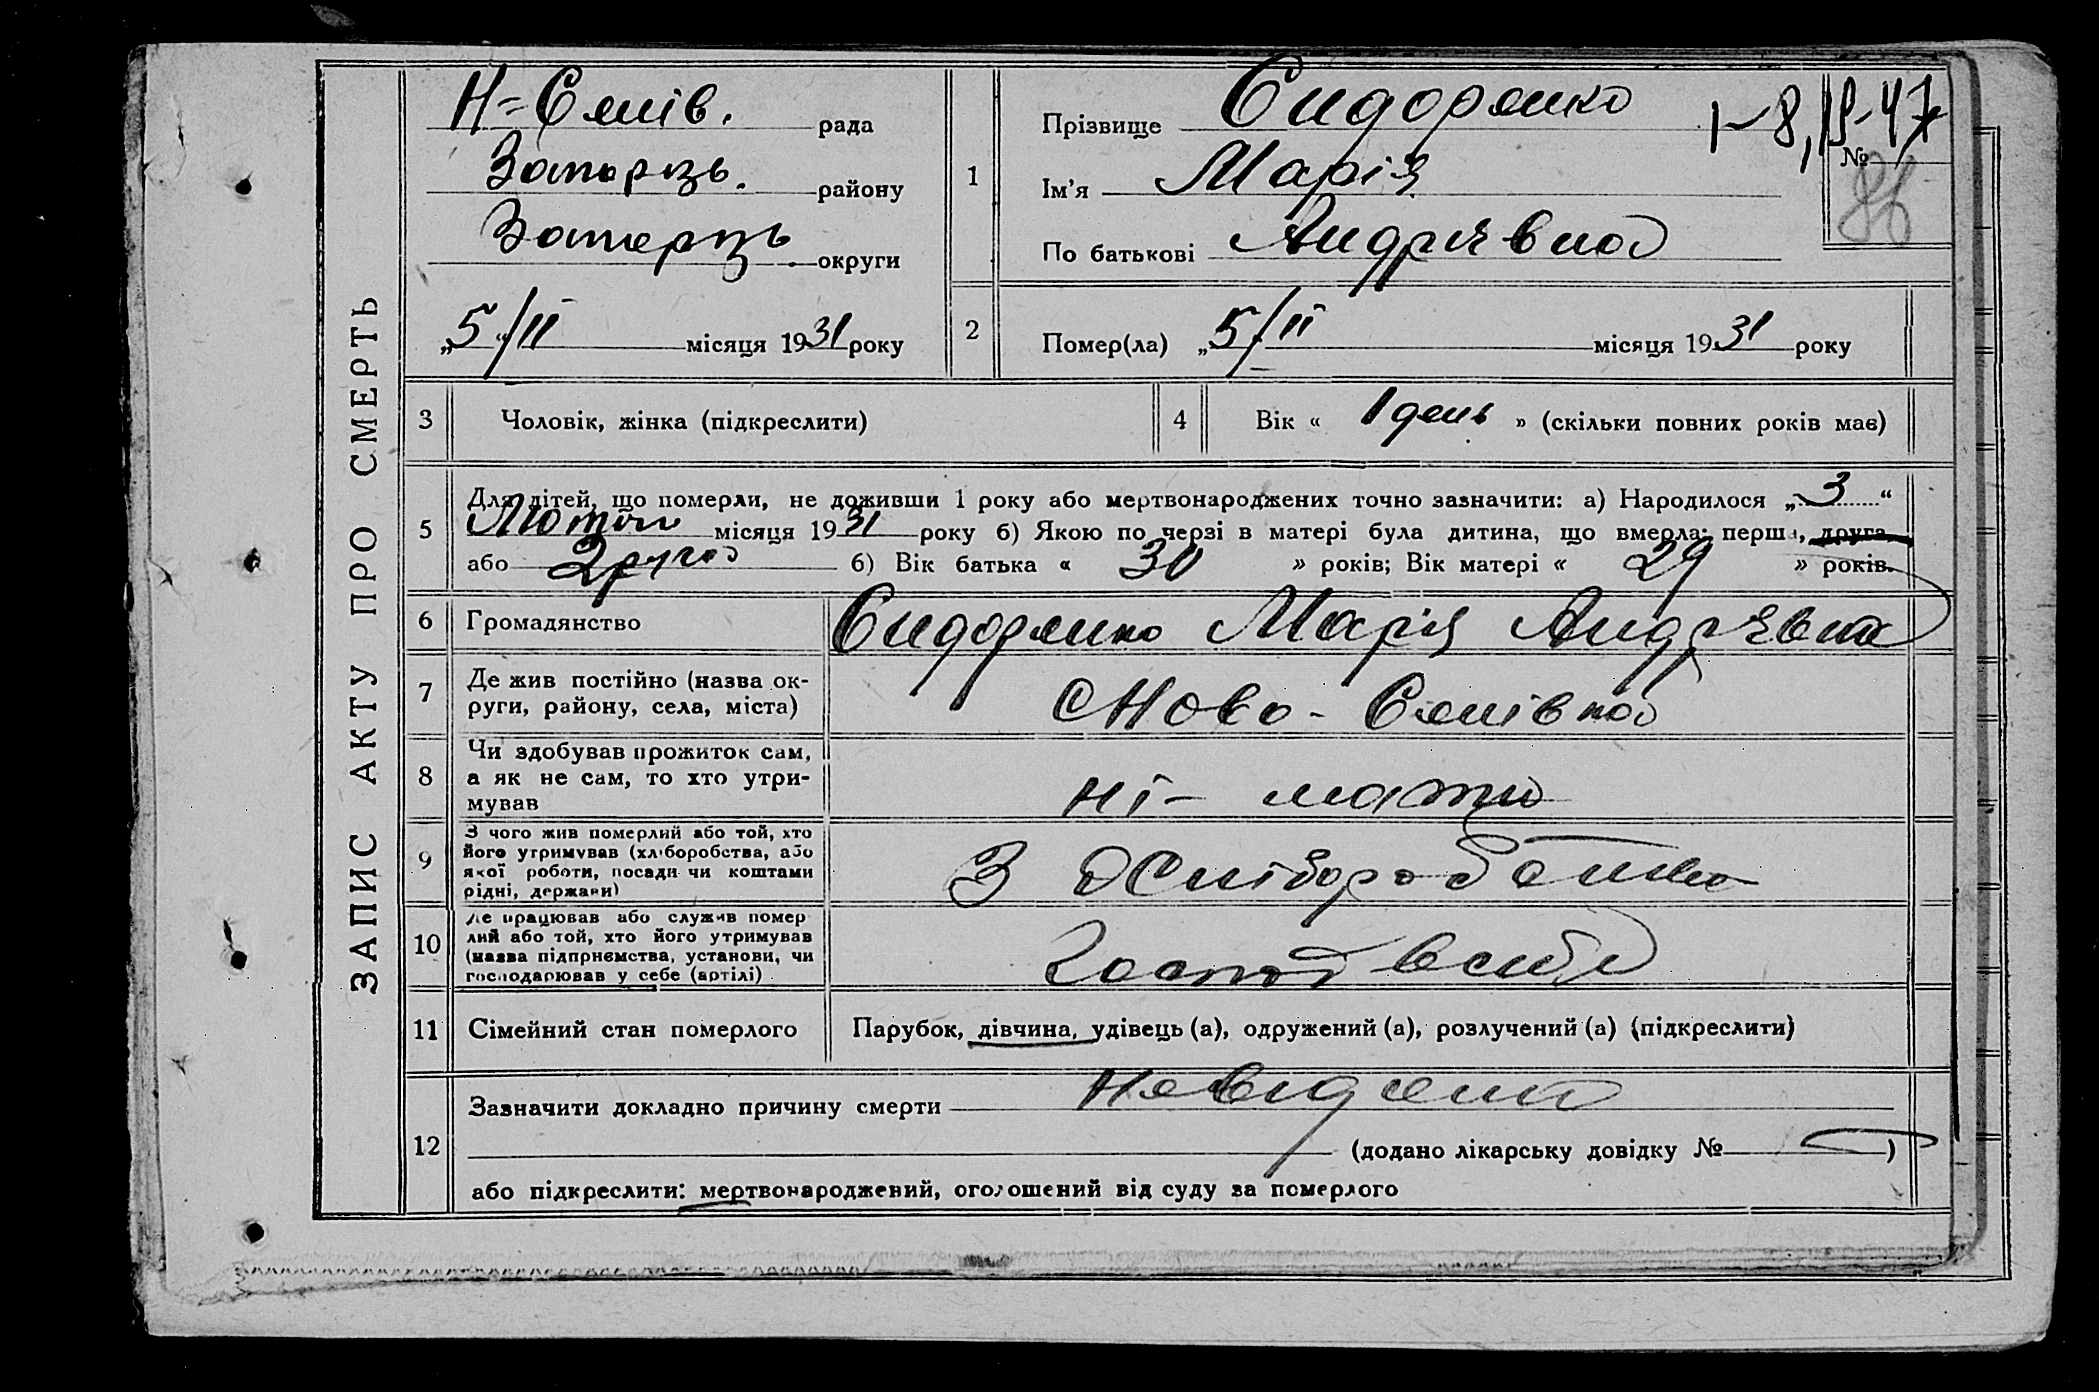 ЗАПИС АКТУ ПРО СМЕРТЬ
Н=Єлнів. рада
Запорізь. району
Запорізь округи
„5“/II місяця 1931 року
1 Прізвище Сидоренко
Ім'я Марія
По батькові Андрієвна
1-8, 19-47
№
2 Помер(ла) „5/II місяця 1931 року
3 Чоловік, жінка (підкреслити)
4 Вік « 1 день » (скільки повних років має)
5 Для дітей, що померли, не доживши 1 року або мертвонароджених точно зазначити: а) Народилося „3“
Лютого місяця 1931 року б) Якою по черзі в матері була дитина, що вмерла: перша, друга,
або 2 друга б) Вік батька « 30 » років; Вік матері « 29 » років.
6 Громадянство Сидоренко Марія Андрієвна
7 Де жив постійно (назва ок-
руги, району, села, міста) Ново-
8 Чи здобував прожиток сам,
а як не сам, то хто утри-
мував ні - мати
9 З чого жив померлий або той, хто
його утримував (хліборобства, або
якої роботи, посади чи коштами
рідні, держави) З хліборобства
10 Де працював або служив помер
лий або той, хто його утримував
(назва підприємства, установи, чи
господарював у себе (артілі) Господ в себе
11 Сімейний стан померлого Парубок, дівчина, удівець (а), одружений (а), розлучений (а) (підкреслити)
12 Зазначити докладно причину смерти Невидомо
(додано лікарську довідку № — )
або підкреслити: мертвонароджений, оголошений від суду за померлого